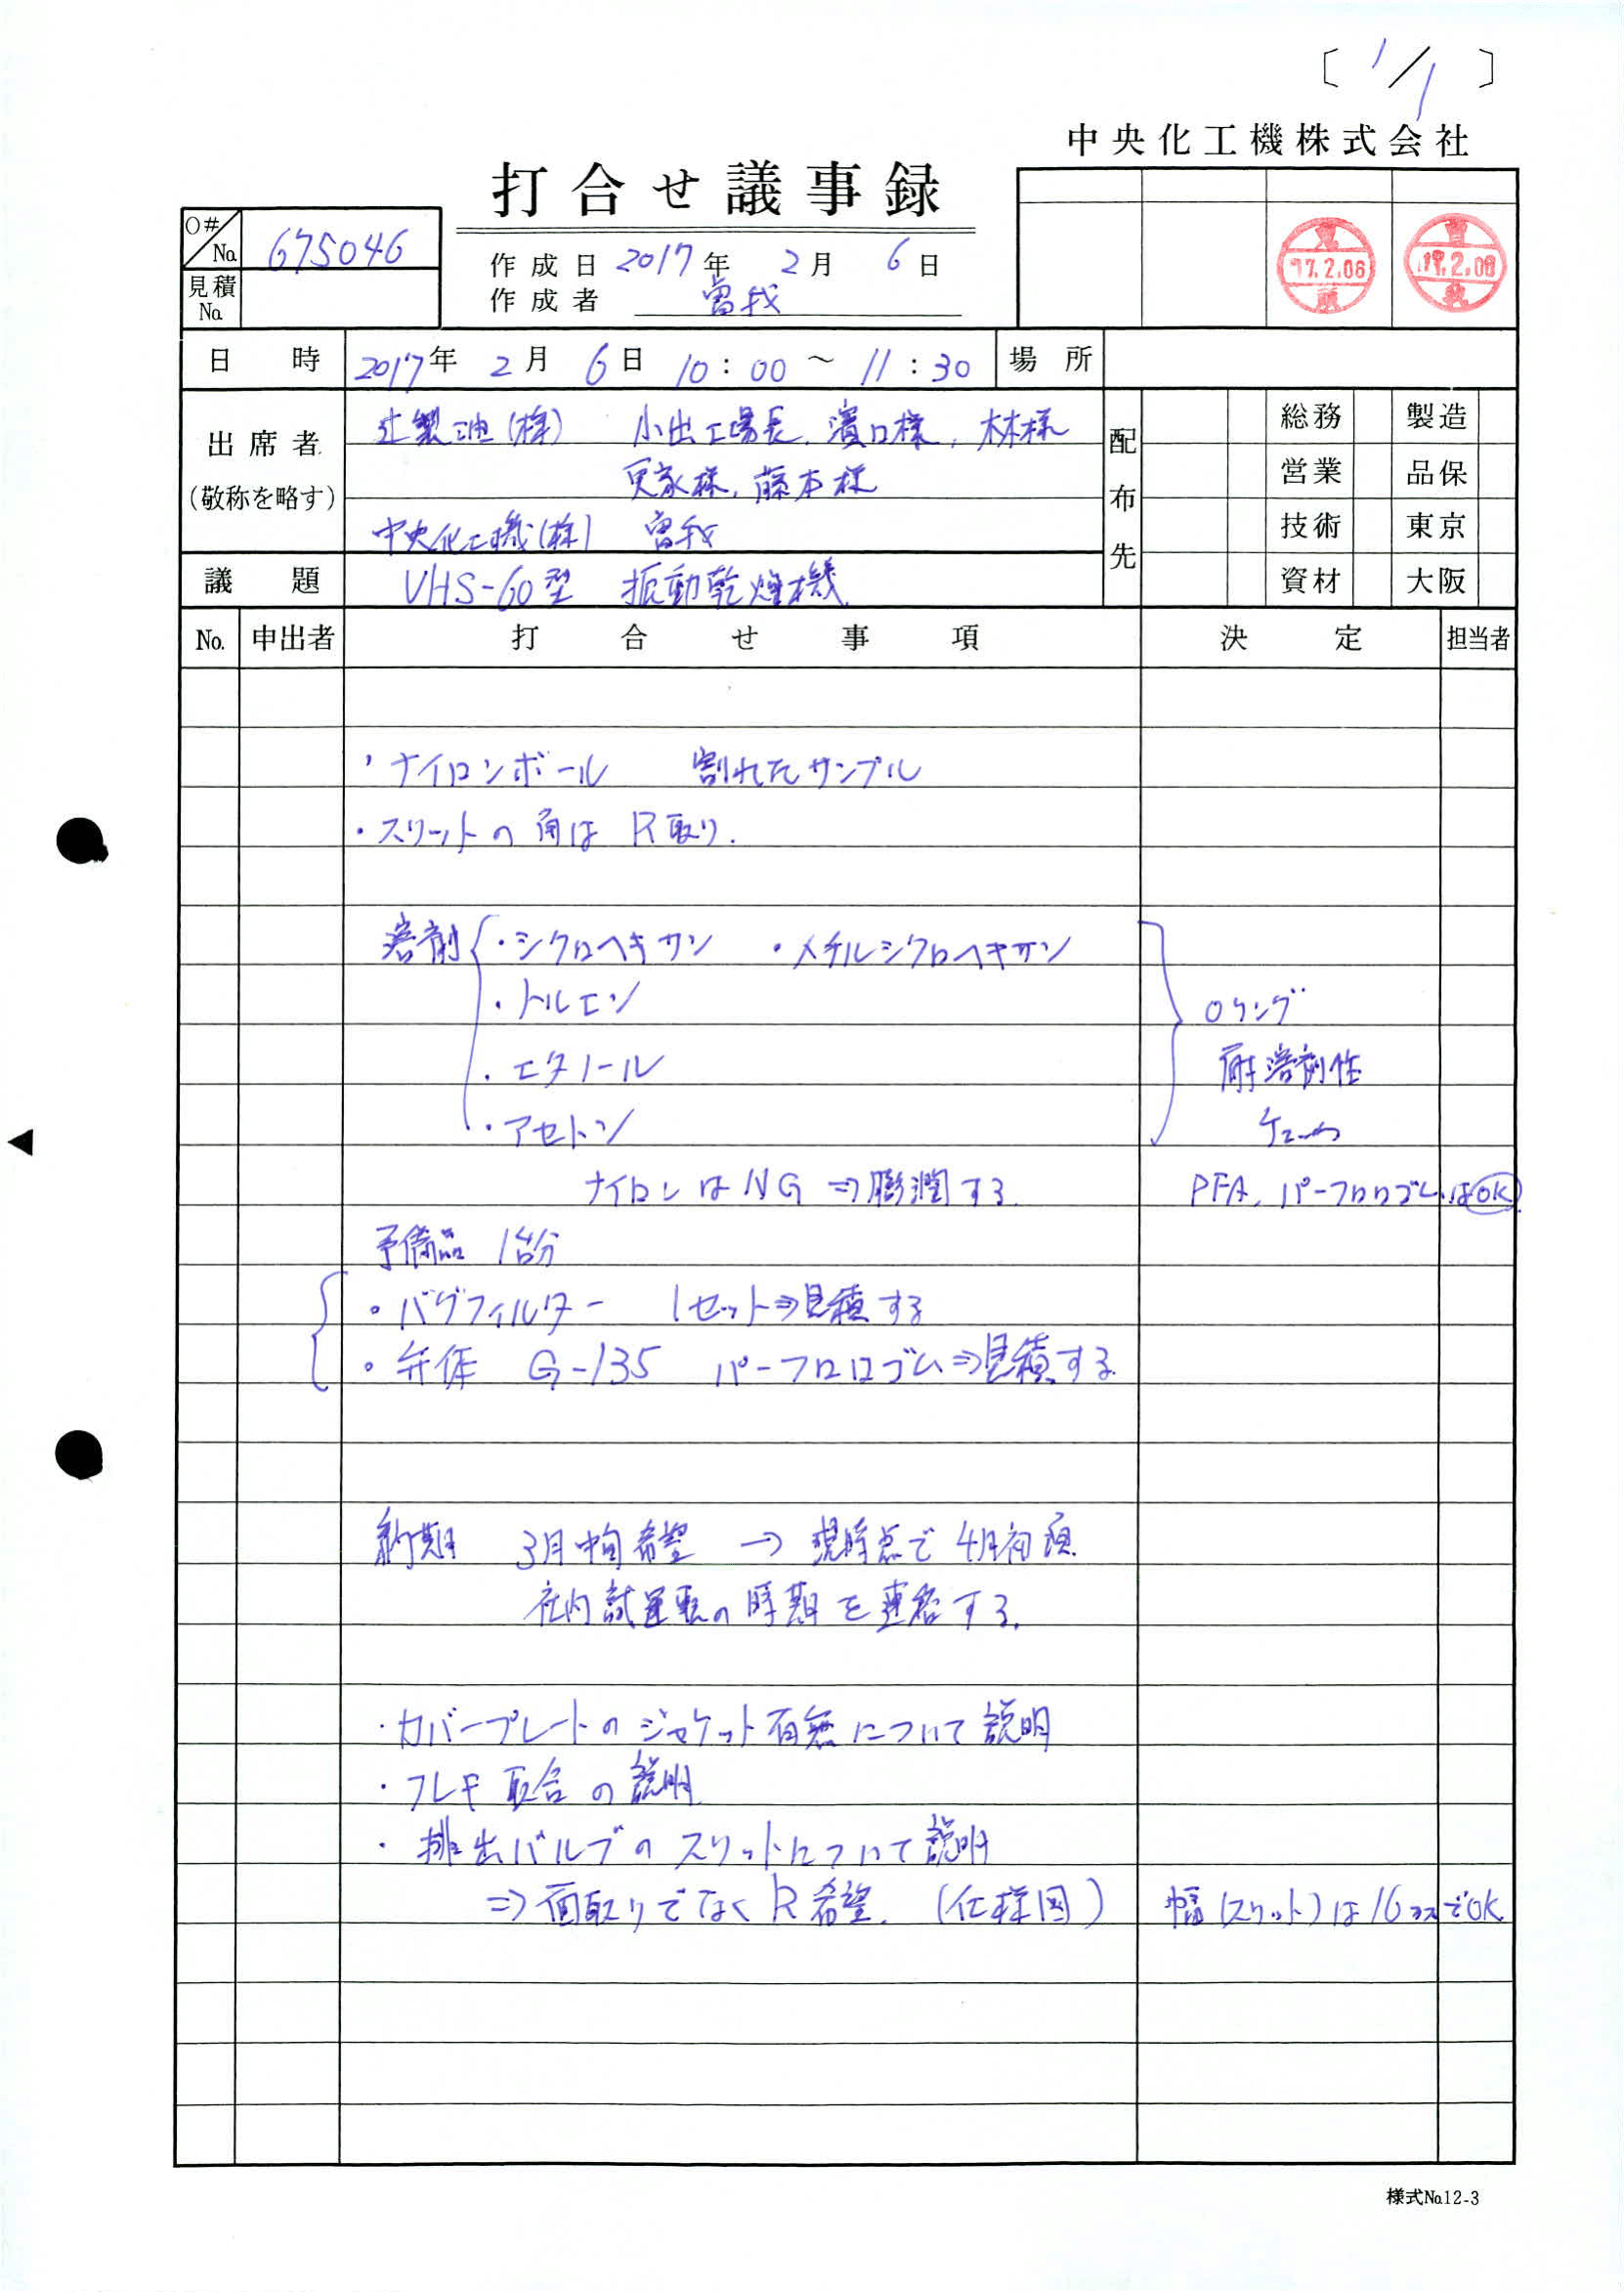 〔 1/1 〕
中央化工機株式会社
打合せ議事録
O# No. 675046
見積 No.
作成日 2017年 2月 6日
作成者 曽我
17.2.06
17.2.06
日時 2017年 2月 6日 10:00 ~ 11:30 場所
出席者 (敬称を略す)
辻製油(株) 小出工場長, 濱口様, 林様
更家様, 藤本様
中央化工機(株) 曽我
配布先
総務 製造
営業 品保
技術 東京
資材 大阪
議題 VHS-60型 振動乾燥機
No. 申出者 打合せ事項 決定 担当者
・ナイロンボール 割れたサンプル
・スリットの角は R取り.
溶剤 ・シクロヘキサン ・メチルシクロヘキサン
・トルエン Oリング
・エタノール 耐溶剤性
・アセトン チェック
ナイロンはNG ⇒膨潤する. PFA, パーフロロゴムはOK
予備品 1台分
・バグフィルター 1セット⇒見積する
・弁体 G-135 パーフロロゴム⇒見積する
納期 3月中旬希望 → 現時点で4月初頭
社内試運転の時期を連絡する.
・カバープレートのジャケット有無について説明
・フレキ取合の説明
・排出バルブのスリットについて説明
⇒面取りでなくR希望. (仕様図) 幅(スリット)は16 でOK
様式No.12-3